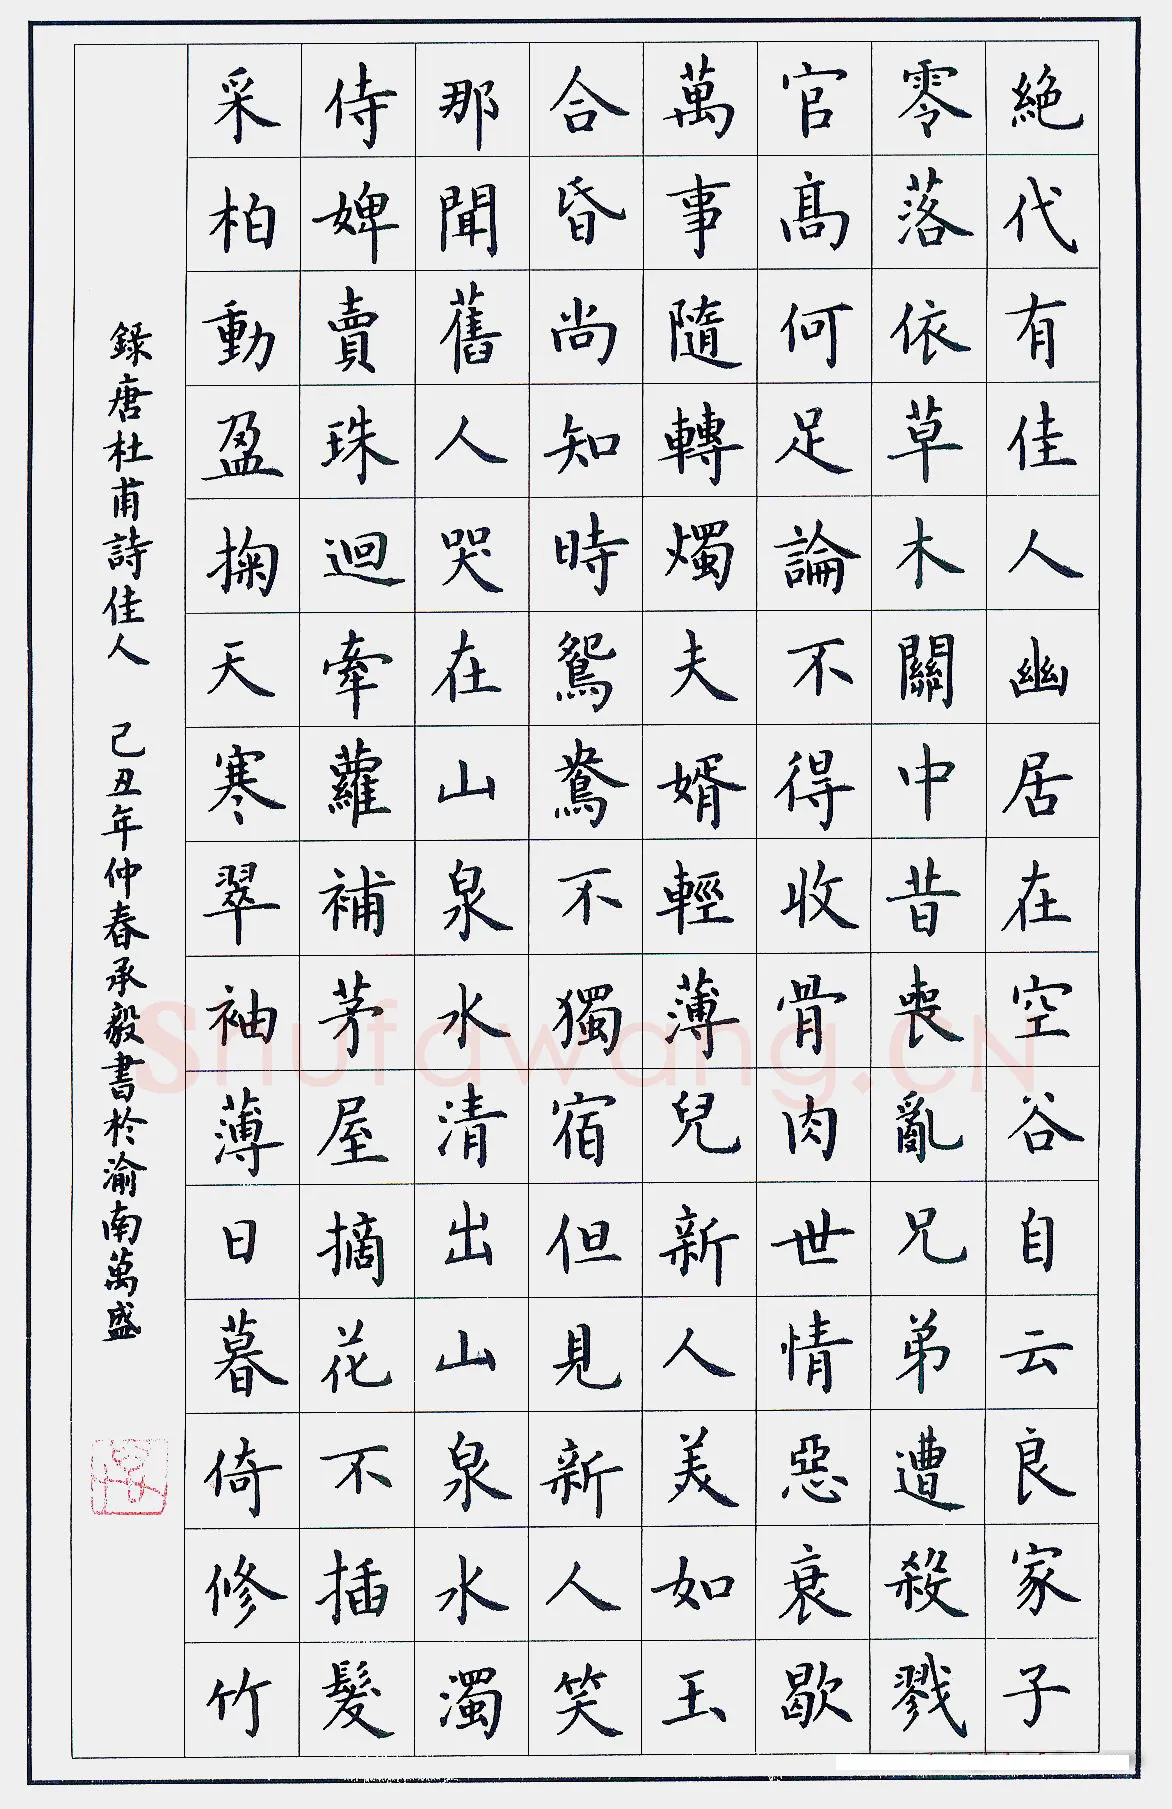 絕代有佳人幽居在空谷自云良家子
零落依草木關中昔喪亂兄弟遭殺戮
官高何足論不得收骨肉世情惡衰歇
萬事隨轉燭夫婿輕薄兒新人美如玉
合昏尚知時鴛鴦不獨宿但見新人笑
那聞舊人哭在山泉水清出山泉水濁
侍婢賣珠迴牽蘿補茅屋摘花不插髮
采柏動盈掬天寒翠袖薄日暮倚修竹
錄唐杜甫詩佳人 己丑年仲春承毅書於渝南萬盛
Shufawang.CN